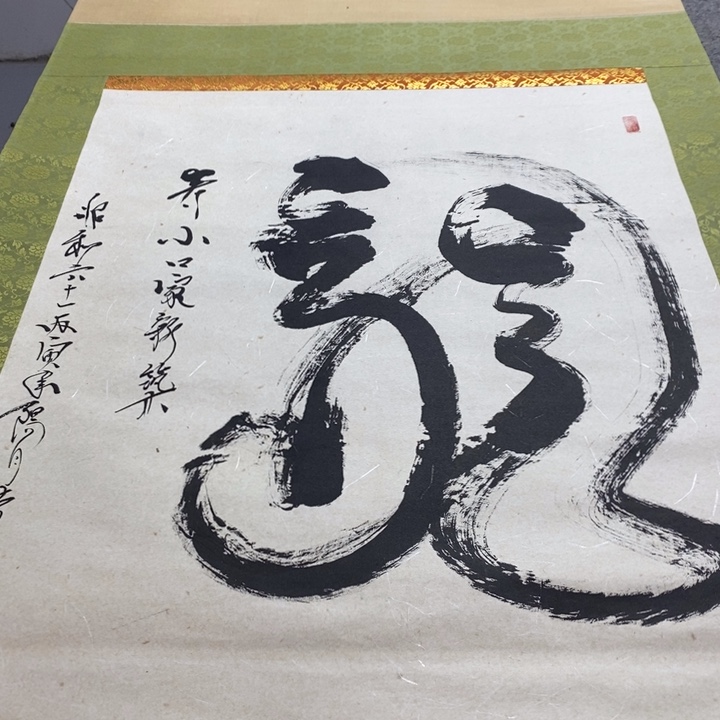 龍
寿小口家新築
昭和六十一丙寅年陽月